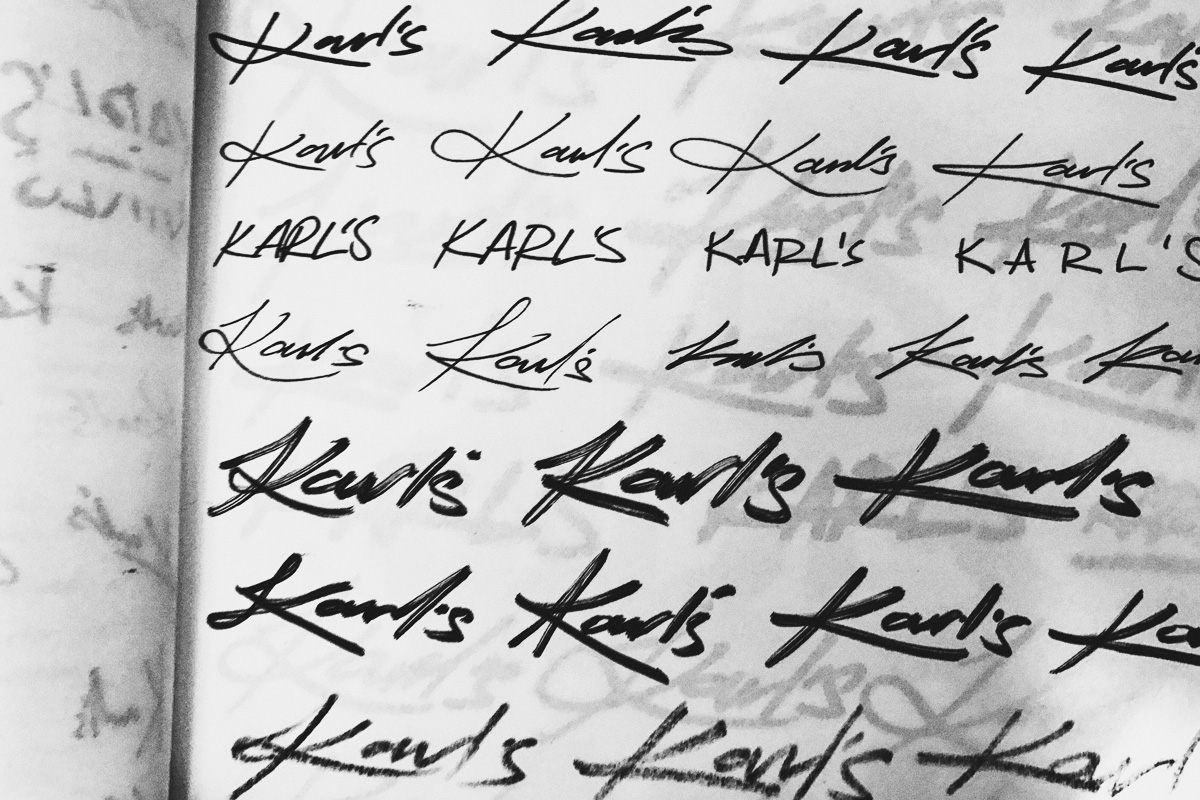 Karl's Karl's Karl's Karl's
Karl's Karl's Karl's Karl's
KARL'S KARL'S KARL's KARL'S
Karl's Karl's Karl's Karl's
Karl's Karl's Karl's
Karl's Karl's Karl's
Karl's Karl's Karl